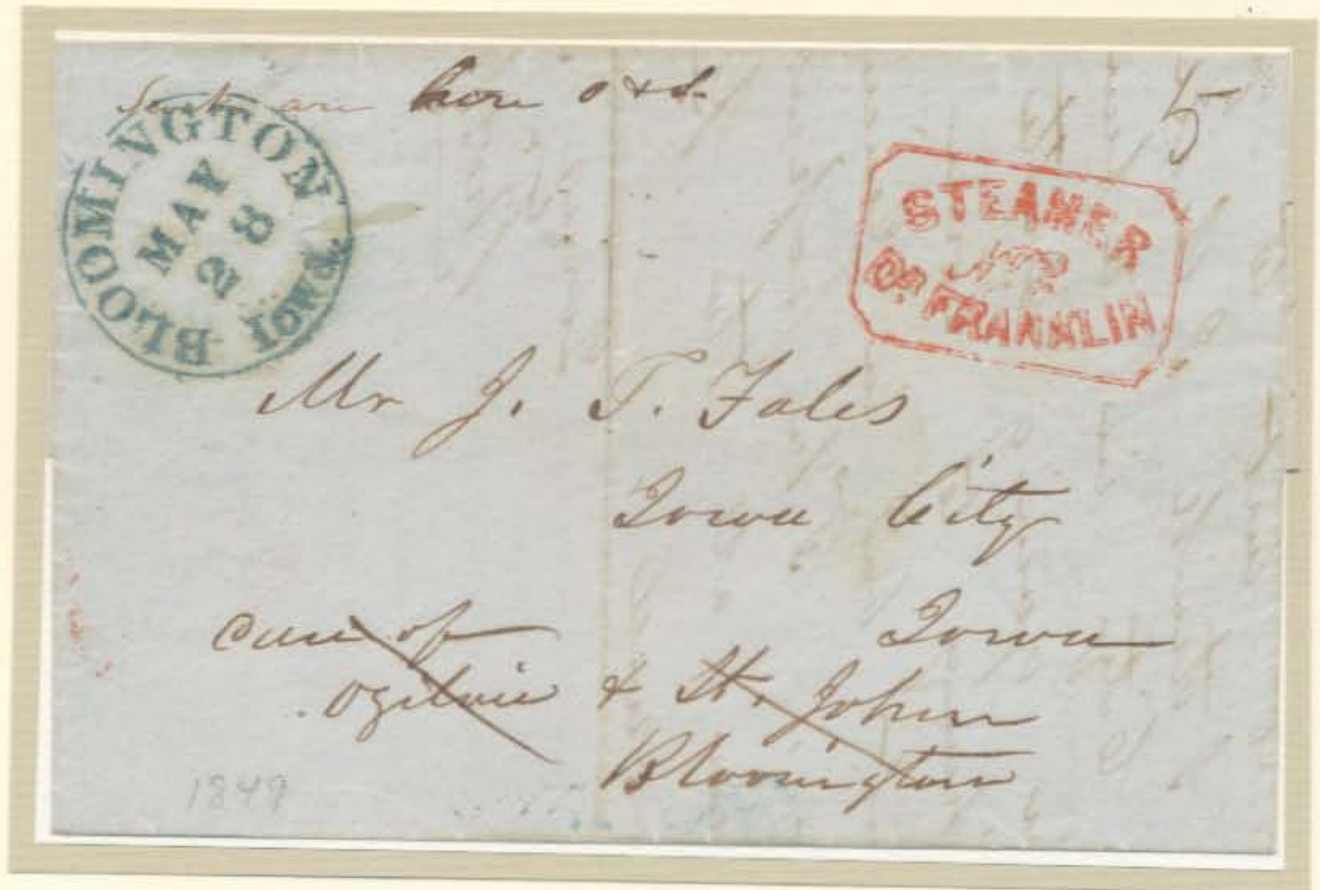 are here O & S.
5
BLOOMINGTON Iowa.
MAY
28
STEAMER
Dr. FRANKLIN
Mr J. T. Fales
Iowa City
Iowa
Care of
Ogilvie & St. John
Bloomington
1849